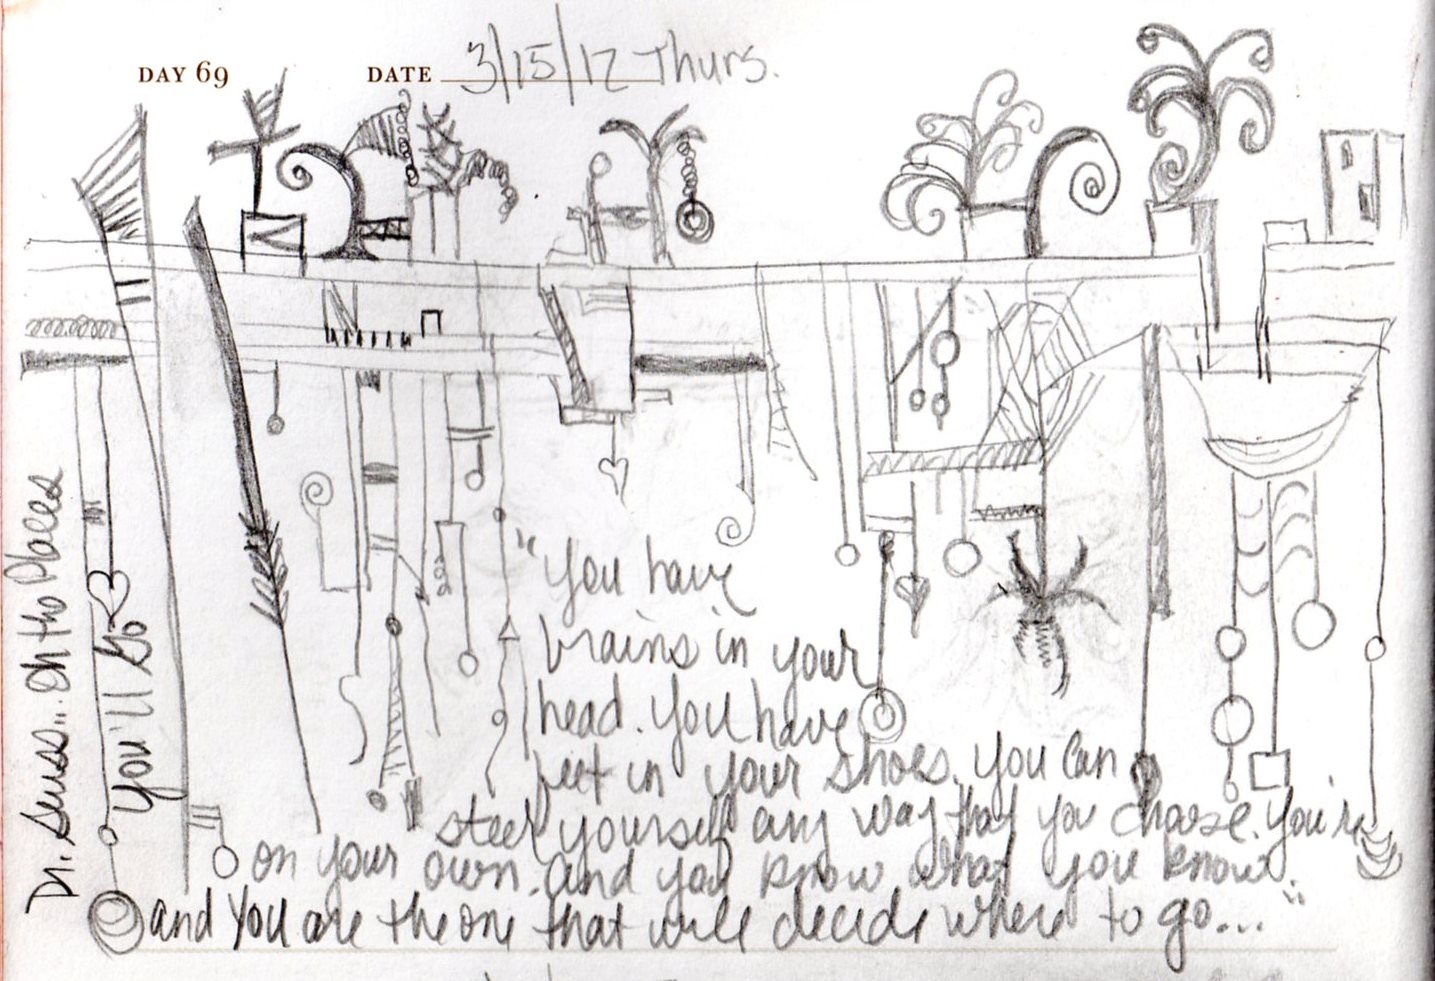 DAY 69 DATE 3/15/12 Thurs.
"You have
brains in your
head. You have
feet in your shoes. You can
steer yourself any way that you choose. You're
on your own. and you know what you know.
and You are the one that will decide where to go..."
Dr. Seuss... Oh the Places
You'll Go